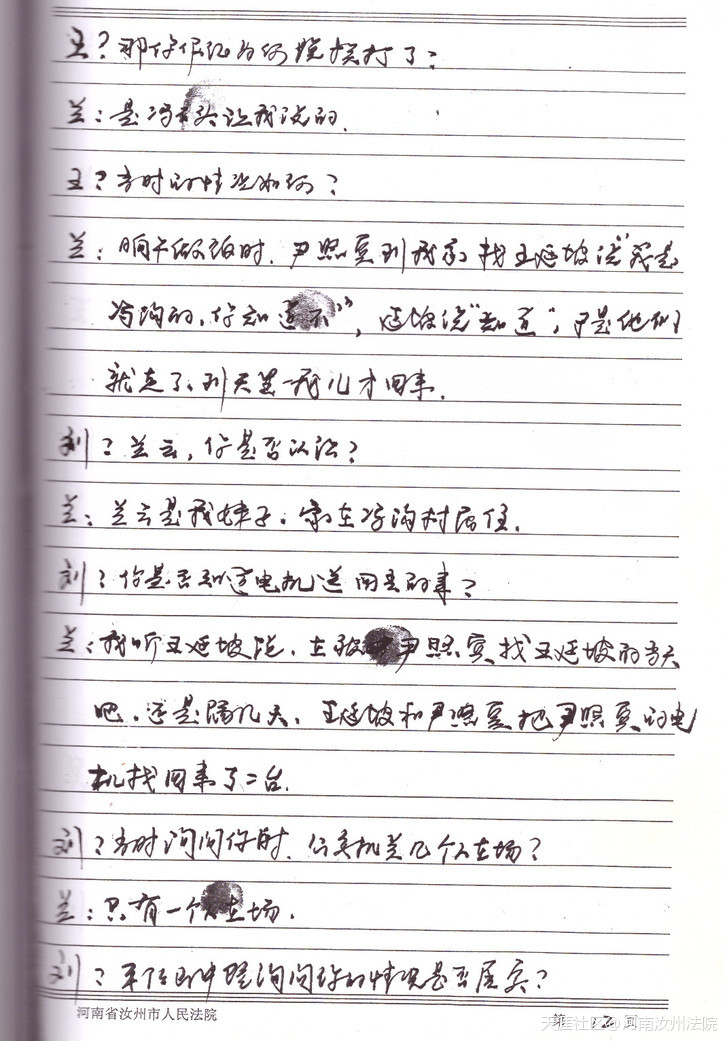 王？那你作证为何说挨打了？
兰：是冯 让我说的.
王？当时的情况如何？
兰：晌午做饭时.尹照宾到我家找王延坡说“我是
冯沟的,你知道不”,延坡说“知道”,于是他们
就走了.到天黑 才回来.
刘？兰云,你是否认识？
兰：兰云是我妹子.家在冯沟村居住.
刘？你是否知道电机送回去的事？
兰：我听王延坡说.在 尹照宾找王延坡的当天
吧.还是隔几天.王延坡和尹照宾把尹照宾的电
机找回来了二台.
刘？当时询问你时.公安机关几个人在场？
兰：只有一个人在场.
刘？ 询问你的情况是否属实？
河南省汝州市人民法院
第 2 页
天涯社区@河南汝州法院